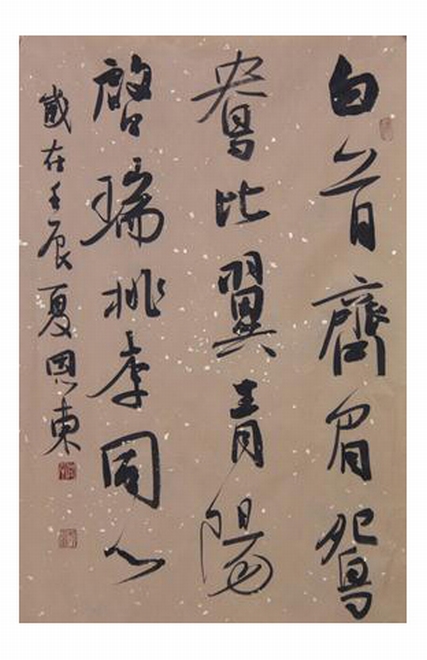 白首齊眉鴛
鴦比翼青陽
啓瑞桃李同心
歲在壬辰夏恩東